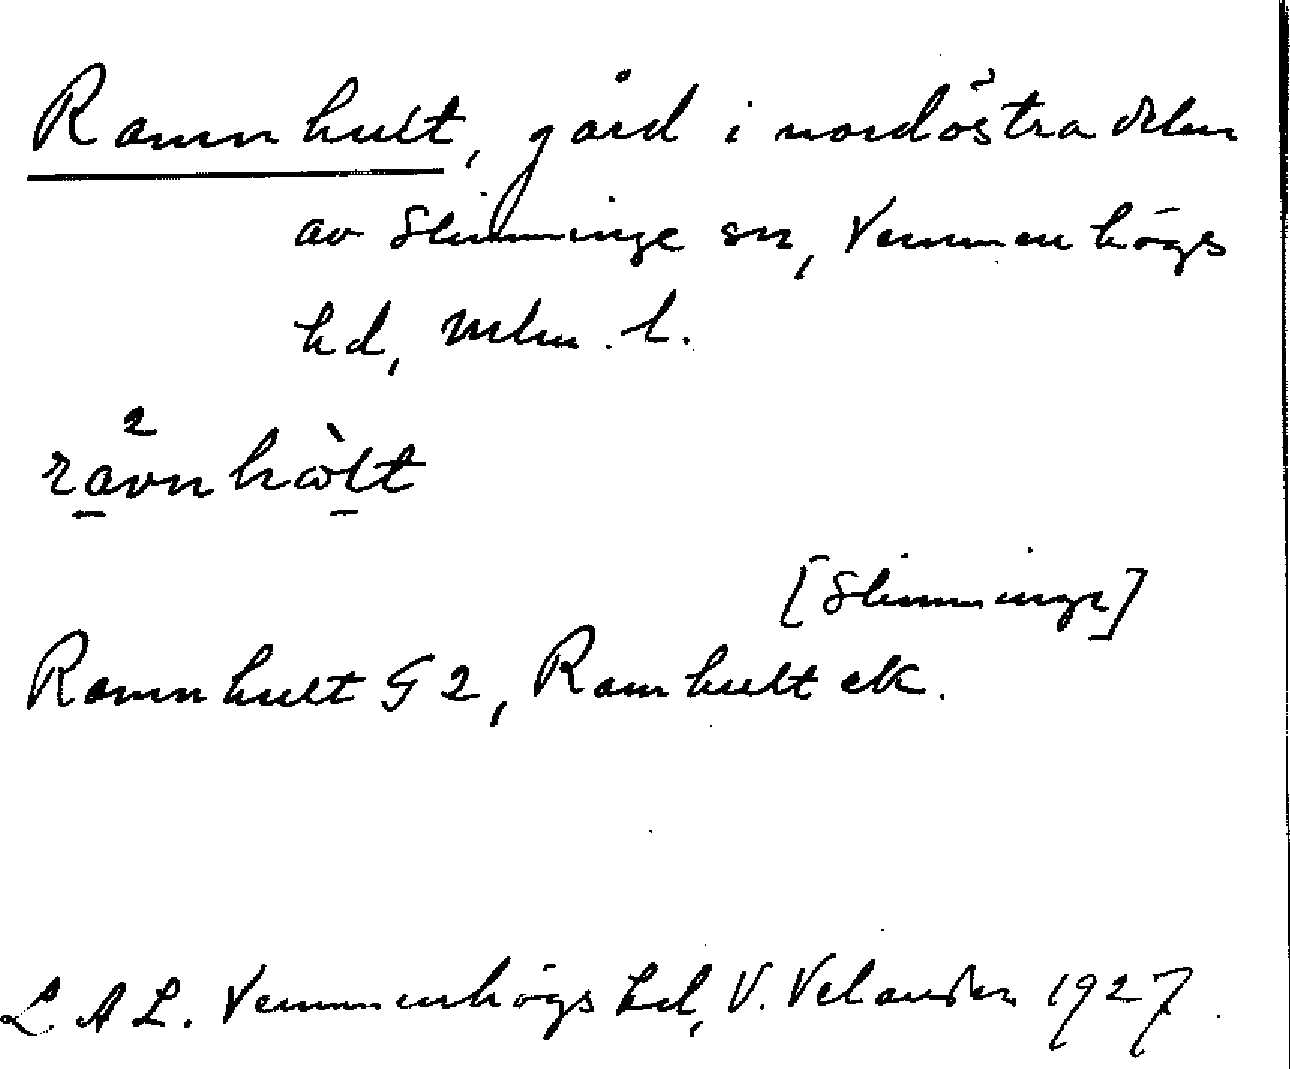 Ramnhult, gård i nordöstra delen
av Slimminge sn, Vemmenhögs
hd, Mlm. l.
2
rav̄nhòlt
[Slimminge]
Ramnhult G 2, Ramhult ek.
L A L. Vemmenhögs hd, V. Velander 1927